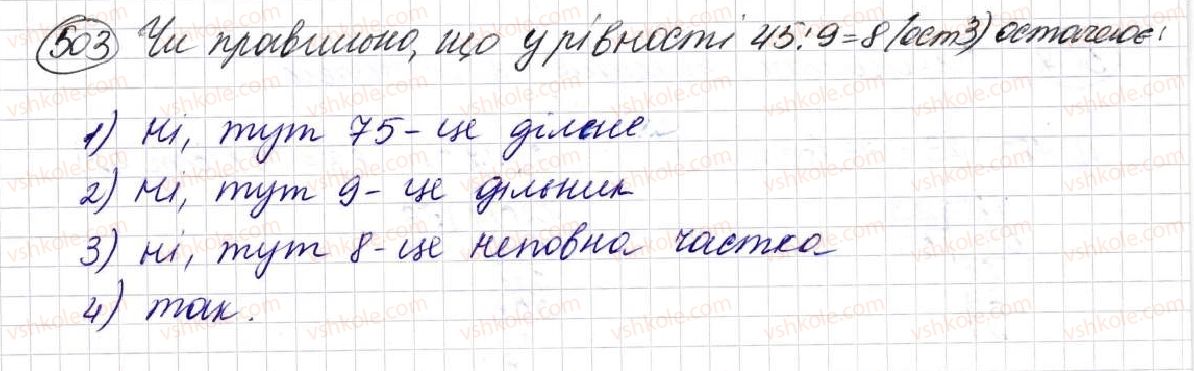 503 Чи правильно, що у рівності 45:9=8 (ост3) остачею є:
1) Ні, тут 75 - це ділене
2) Ні, тут 9 - це дільник
3) Ні, тут 8 - це неповна частка
4) так.